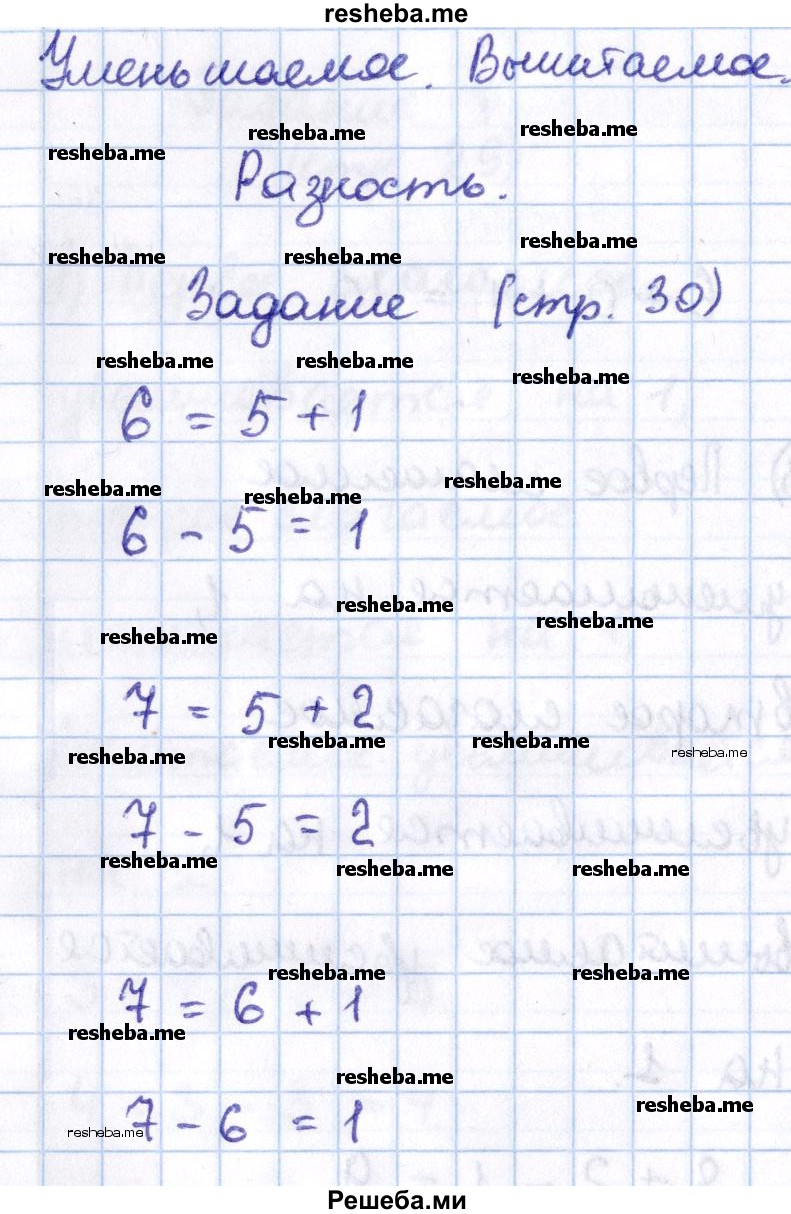 resheba.me
Уменьшаемое. Вычитаемое.
resheba.me resheba.me resheba.me
Разность.
resheba.me resheba.me resheba.me
Задание (стр. 30)
resheba.me resheba.me resheba.me
6 = 5 + 1
resheba.me resheba.me resheba.me
6 - 5 = 1
resheba.me resheba.me resheba.me
7 = 5 + 2
resheba.me resheba.me resheba.me resheba.me
7 - 5 = 2
resheba.me resheba.me resheba.me
resheba.me resheba.me
7 = 6 + 1
resheba.me resheba.me
resheba.me resheba.me
7 - 6 = 1
Решеба.ми